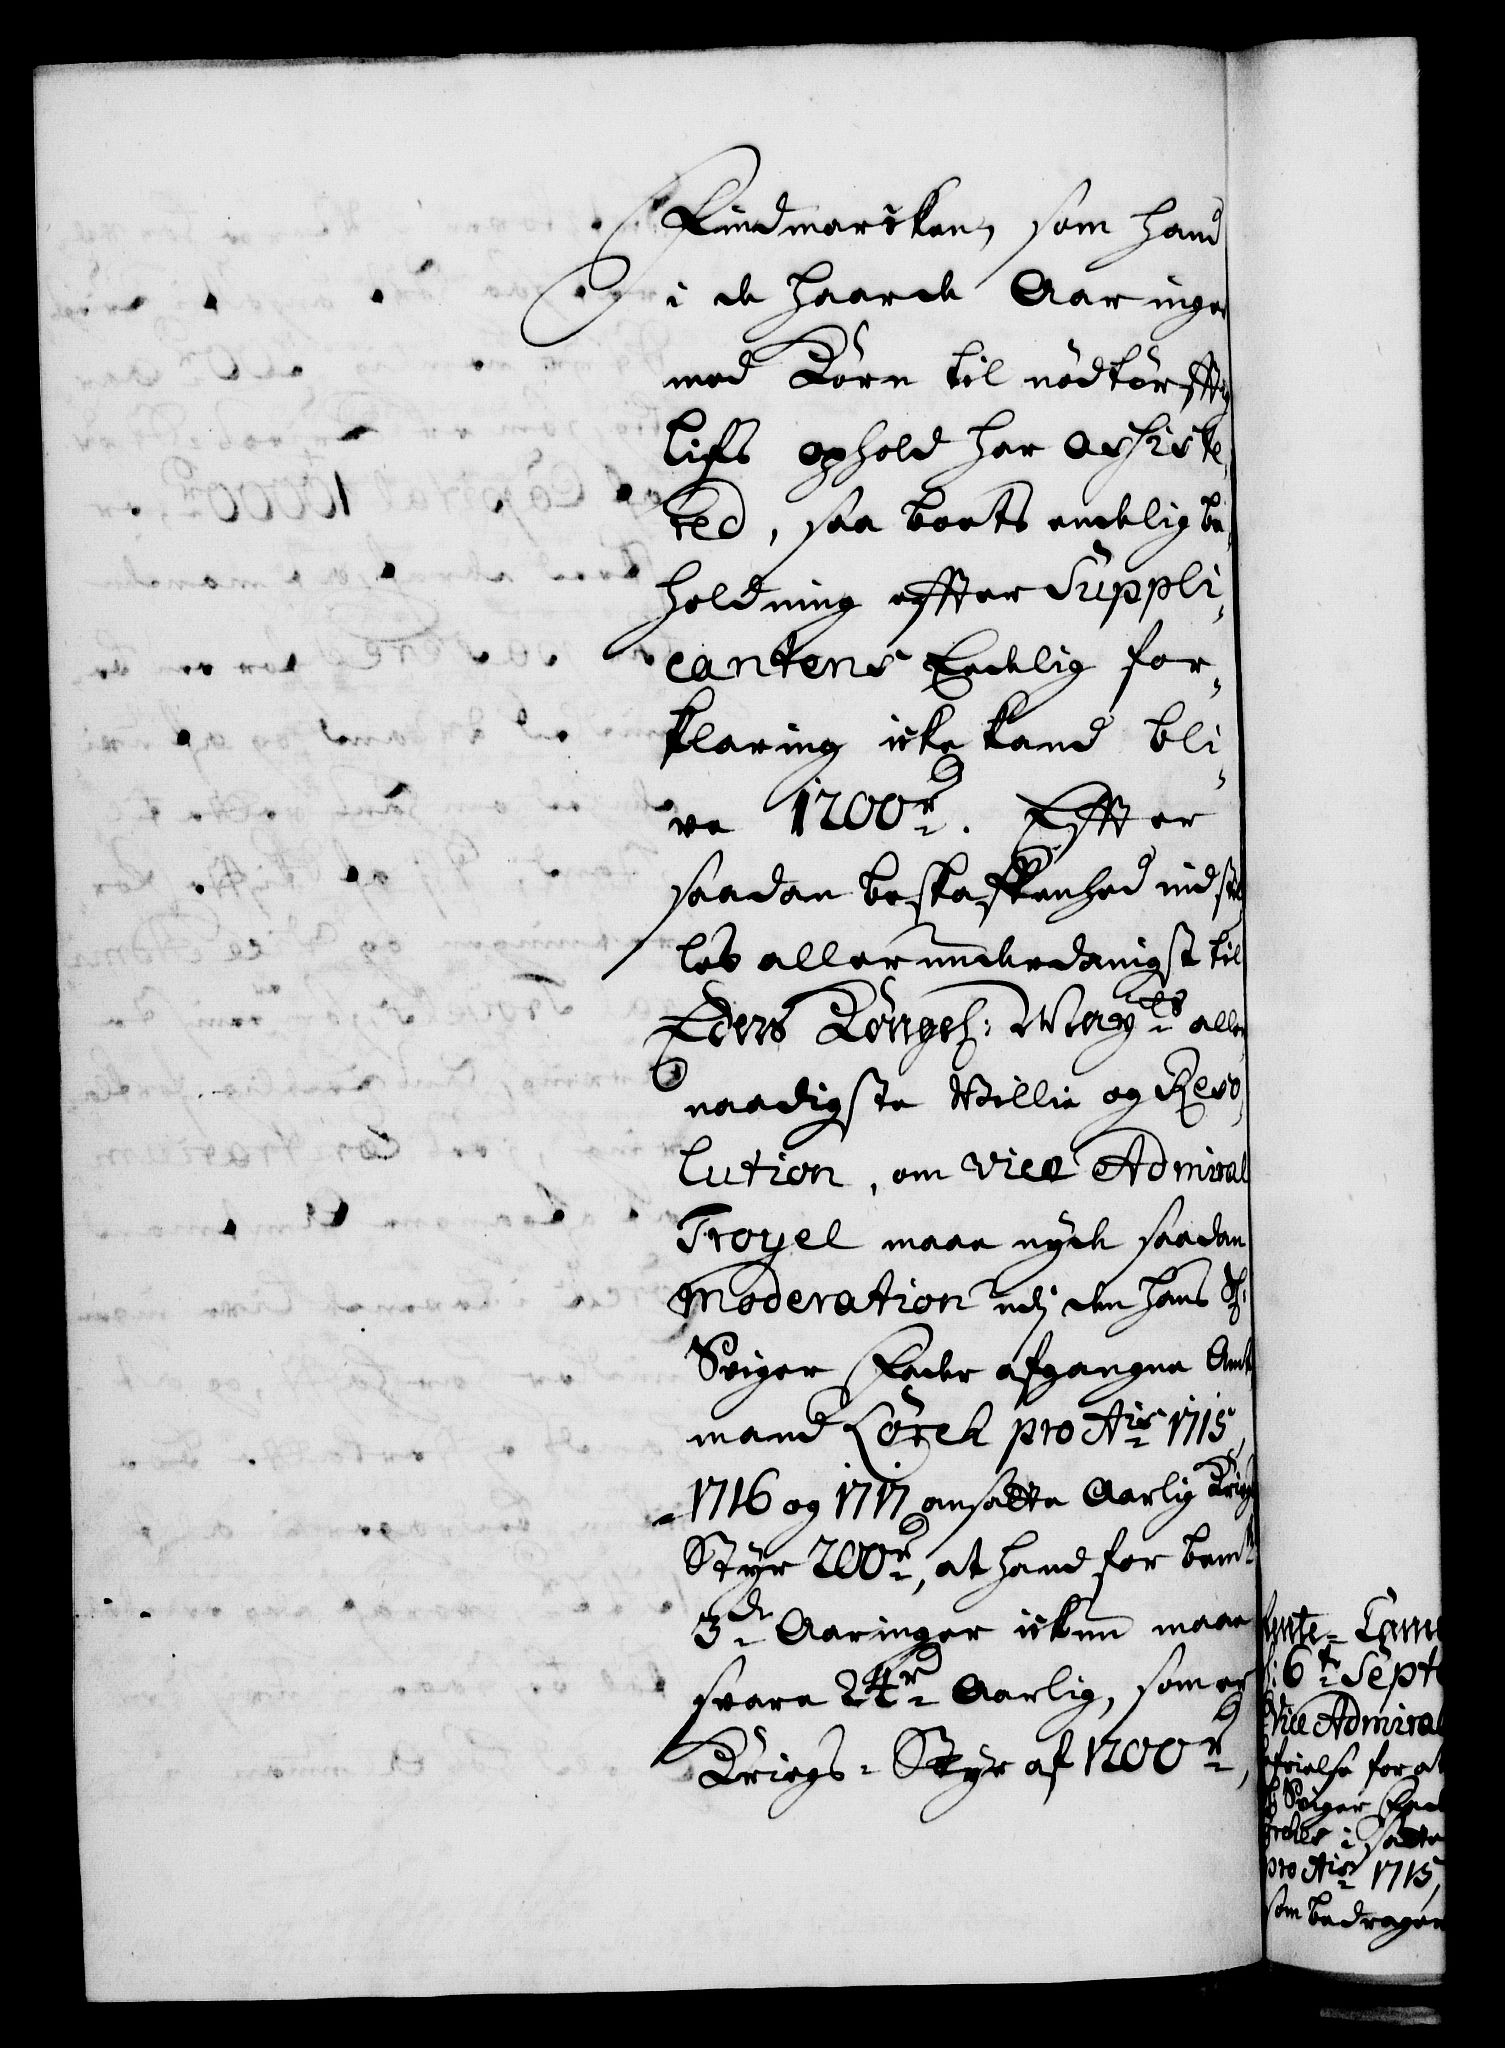 Findmarcken, som hand
i de haarde Aaringer
med Korn til nødtørfftig
lifs ophold har assiste,
red, saa borts endelig be,
holdning effter Suppli,
cantens Eedlig for,
klaring icke kand bli,
ve 1200 rd. Effter
saadan beskaffenhed indstil
les allerunderdanigst til
Eders Kongel: Mayts aller
naadigste Willie og Reso,
lution, om Vice Admiral
Trojel maae nyde saadan
Moderation udj den hans Sl:
Sviger Fader afgangne Amt,
mand Lorck pro Ais 1715,
1716 og 1717 ansatte Aarlig Krigs
Styr 200 rd, at hand for bemte
3de Aaringer ickun maae
svare 24 rd Aarlig, som er
Kriegs-Styr af 1200 rd,
Rente-Cam
6te Septe
Vice Admiral
frielse for at
Sviger Fad
i satte
pro Ais 1715,
som bedragen